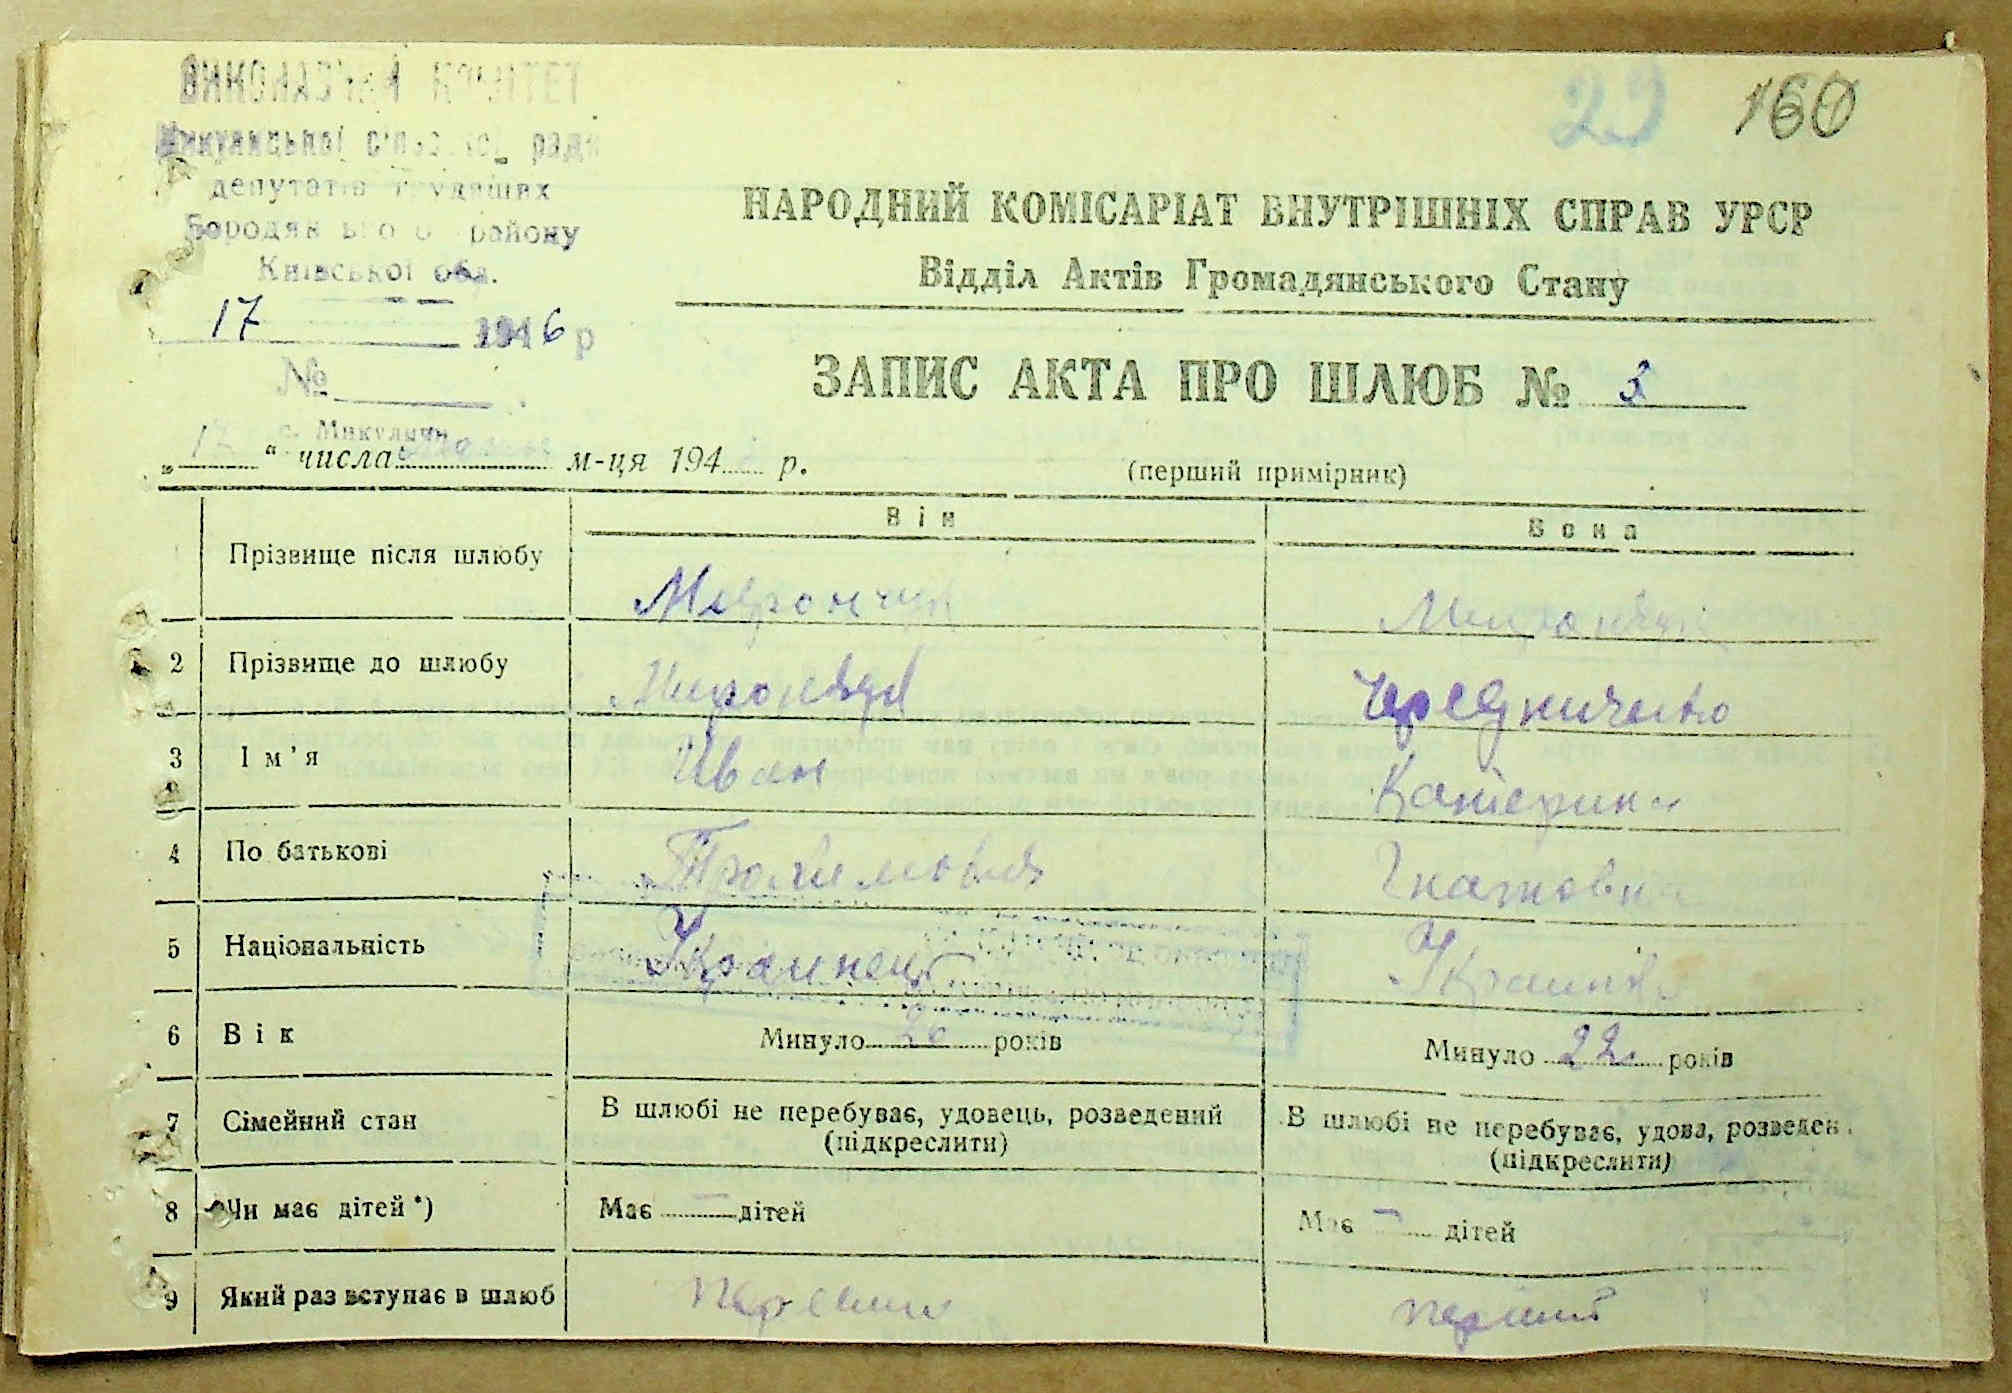 ВИКОНАВЧИЙ КОМІТЕТ
Микулицької сільської ради
депутатів трудящих
Бородянського району
Київської обл.
17 1946 р
№
с. Микуличі
29 160
НАРОДНИЙ КОМІСАРІАТ ВНУТРІШНІХ СПРАВ УРСР
Відділ Актів Громадянського Стану
ЗАПИС АКТА ПРО ШЛЮБ № 3
„ 17 “ числа м-ця 194 р.
(перший примірник)
Він Вона
Прізвище після шлюбу Мирончук Мирончук
2 Прізвище до шлюбу Мирончук Чередниченко
3 Ім'я Иван Катерина
4 По батькові Игнатовна
5 Національність Украинец Украинка
6 Вік Минуло 20 років Минуло 22 років
7 Сімейний стан В шлюбі не перебуває, удовець, розведений (підкреслити) В шлюбі не перебуває, удова, розведен (підкреслити)
8 Чи має дітей *) Має — дітей Має — дітей
9 Який раз вступає в шлюб первий перший